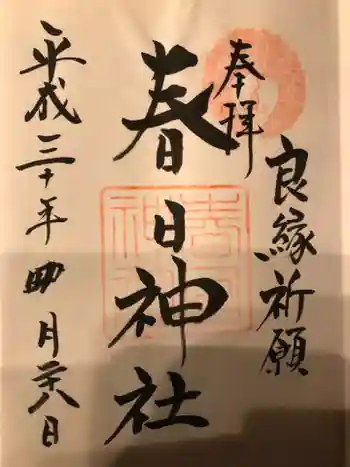 奉拝
良縁祈願
春日神社
平成三十年四月二十八日